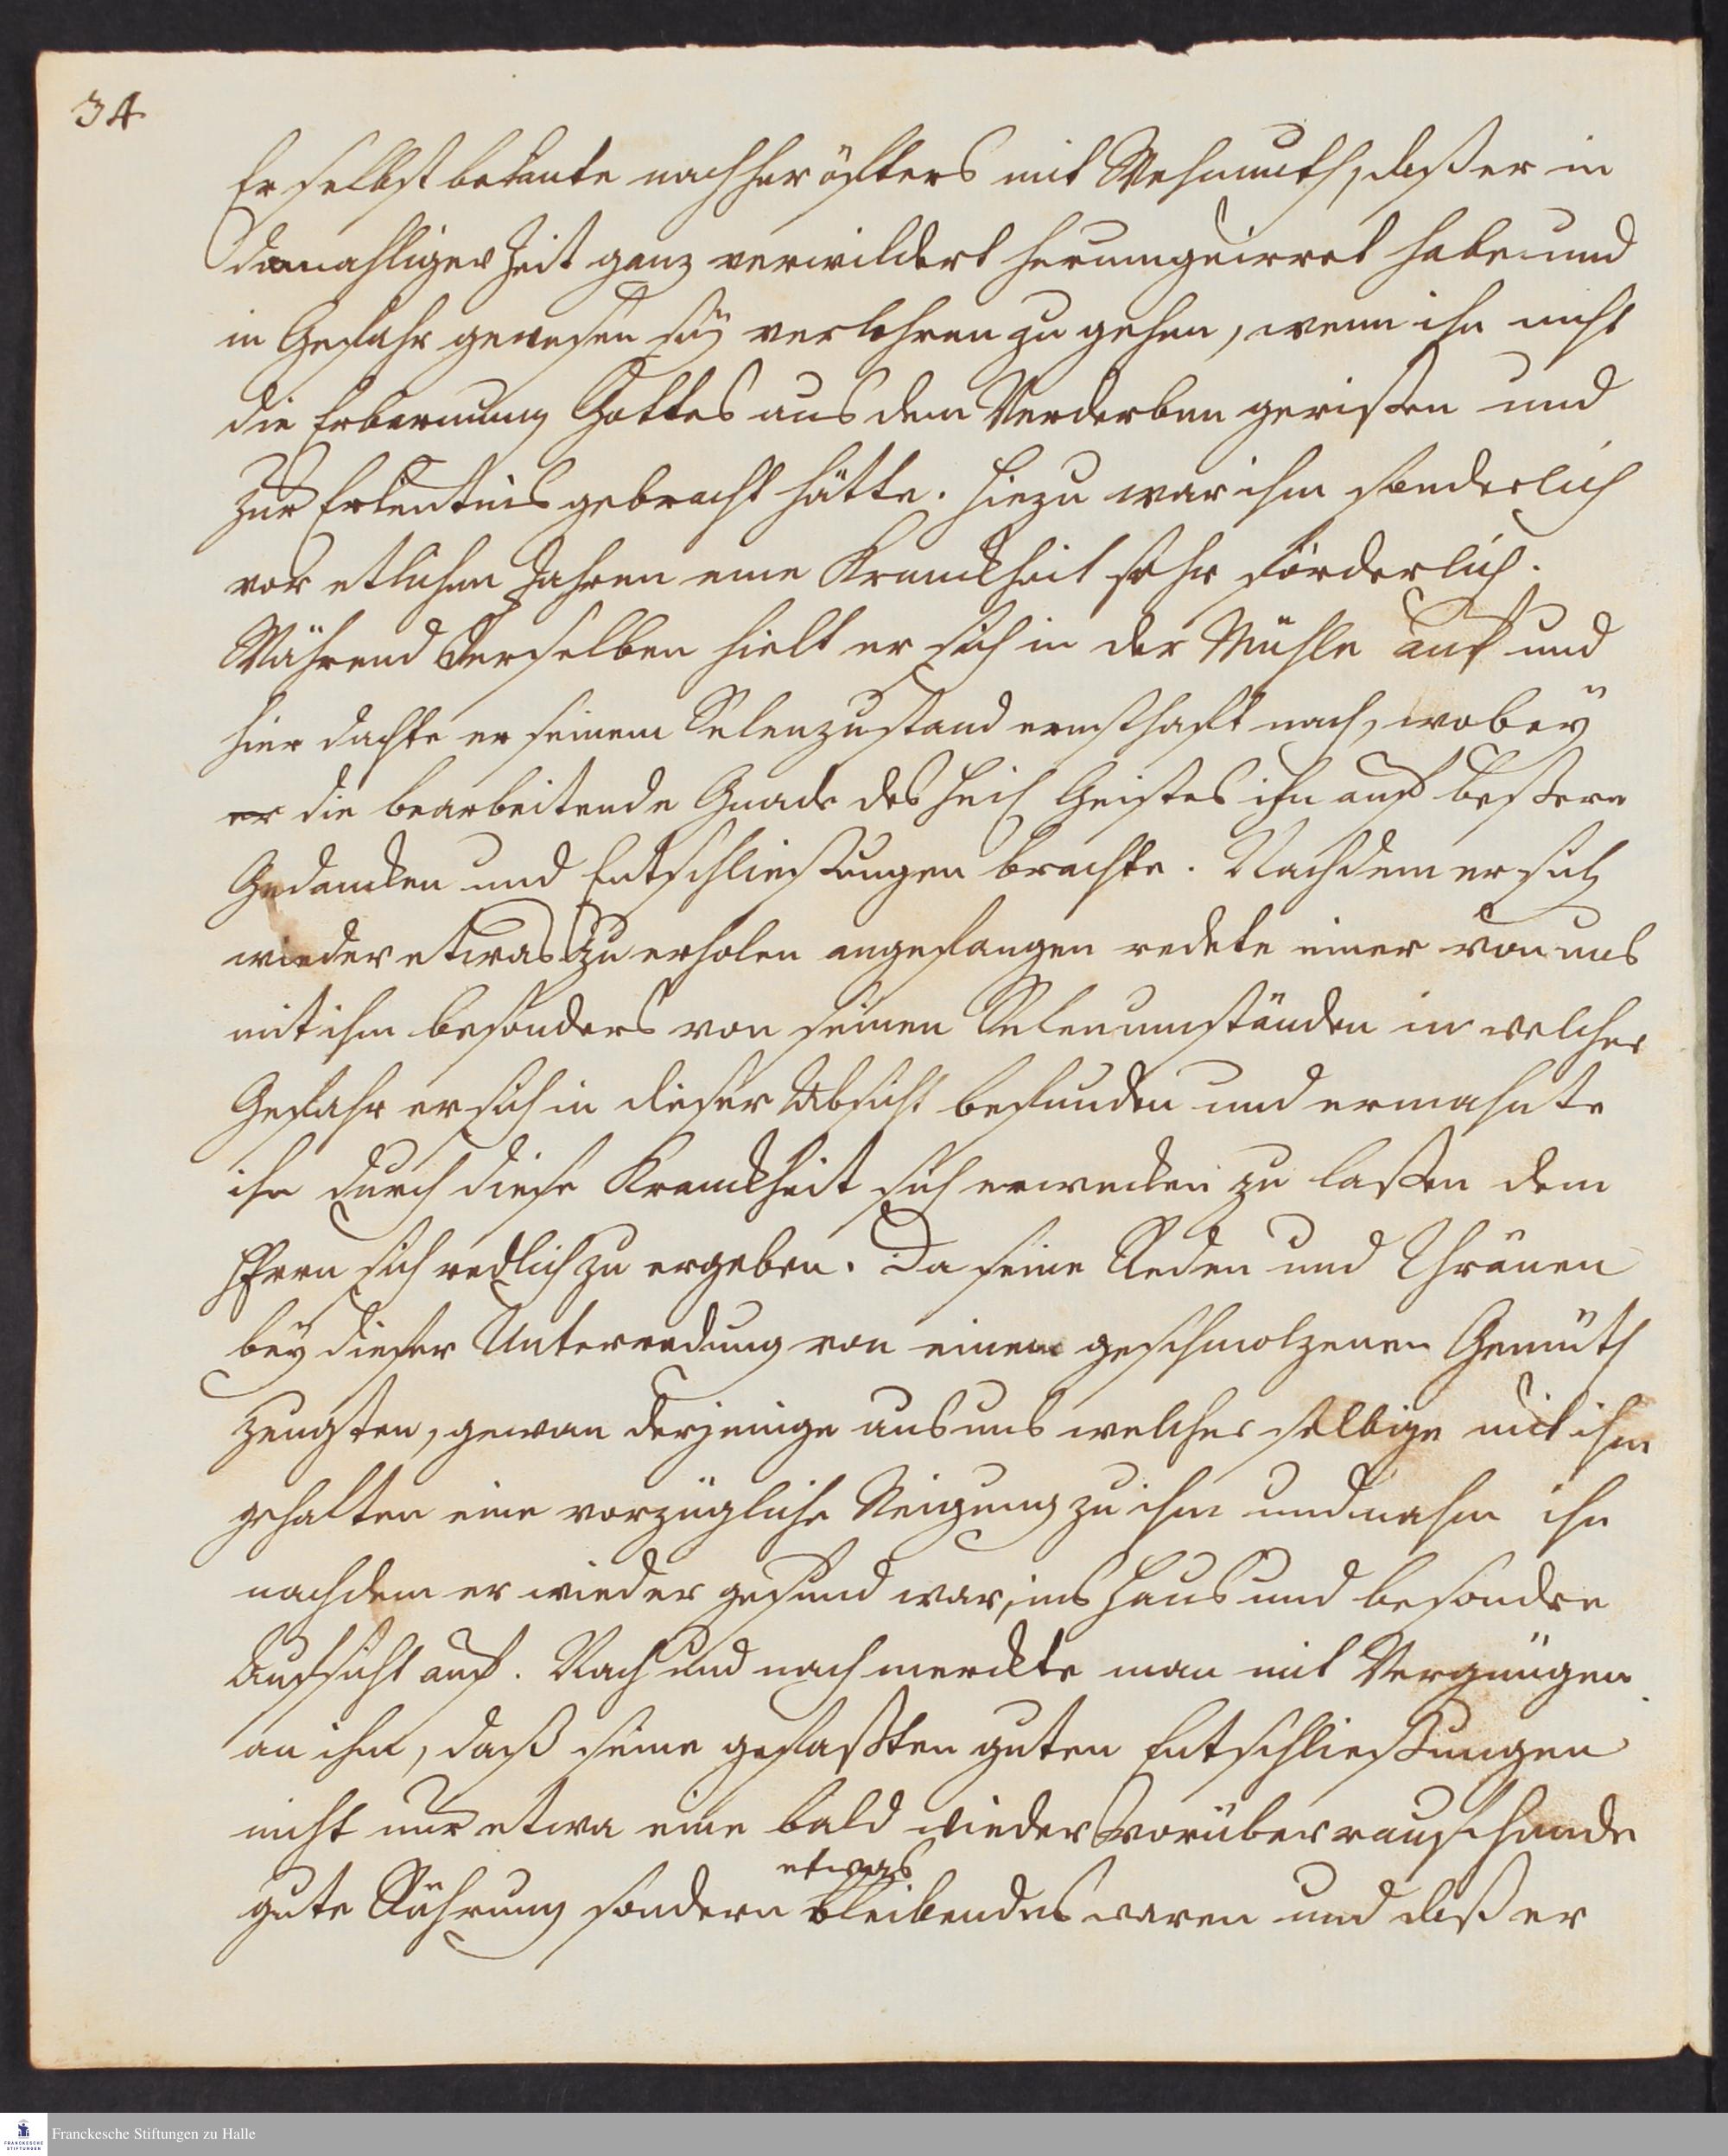 34
Er selbst bekante nachher öfters mit Wehmuth, daß er in
damahliger Zeit ganz verwildert herumgeirret habe und
in Gefahr gewesen sey verlohren zu gehen, wenn ihn nicht
die Erbarmung Gottes aus dem Verderben gerißen und
zur Erkentnis gebracht hätte. Hiezu war ihm sonderlich
vor etlichen Jahren eine Kranckheit sehr förderlich.
Während derselben hielt er sich in der Mühle auf und
hier dachte er seinem Selenzustand ernsthaft nach, wobey
er die bearbeitende Gnade des Heil Geistes ihn auf beßere
Gedancken und Entschließungen brachte. Nachdem er sich
wieder etwas zu erholen angefangen redete einer von uns
mit ihm besonders von seinen Selenumständen in welcher
Gefahr er sich in dieser Absicht befunden und ermahnte
ihn durch diese Kranckheit sich erwecken zu laßen dem
HErrn sich redlich zu ergeben. Da seine Reden und Thränen
bey dieser Unterredung von einem geschmolzenen Gemüth
zeugten, gewan derjenige aus uns welcher selbige mit ihm
gehalten eine vorzügliche Neigung zu ihm und nahm ihn
nachdem er wieder gesund war, ins Haus und besondre
Aufsicht auf. Nach und nach merckte man mit Vergnügen
an ihm, daß seine gefaßten guten Entschließungen
nicht nur etwa eine bald wieder vorüberrauschende
etwas
gute Rührung sondern bleibendes waren und daß er
Franckesche Stiftungen zu Halle
FRANCKESCHE STIFTUNGEN